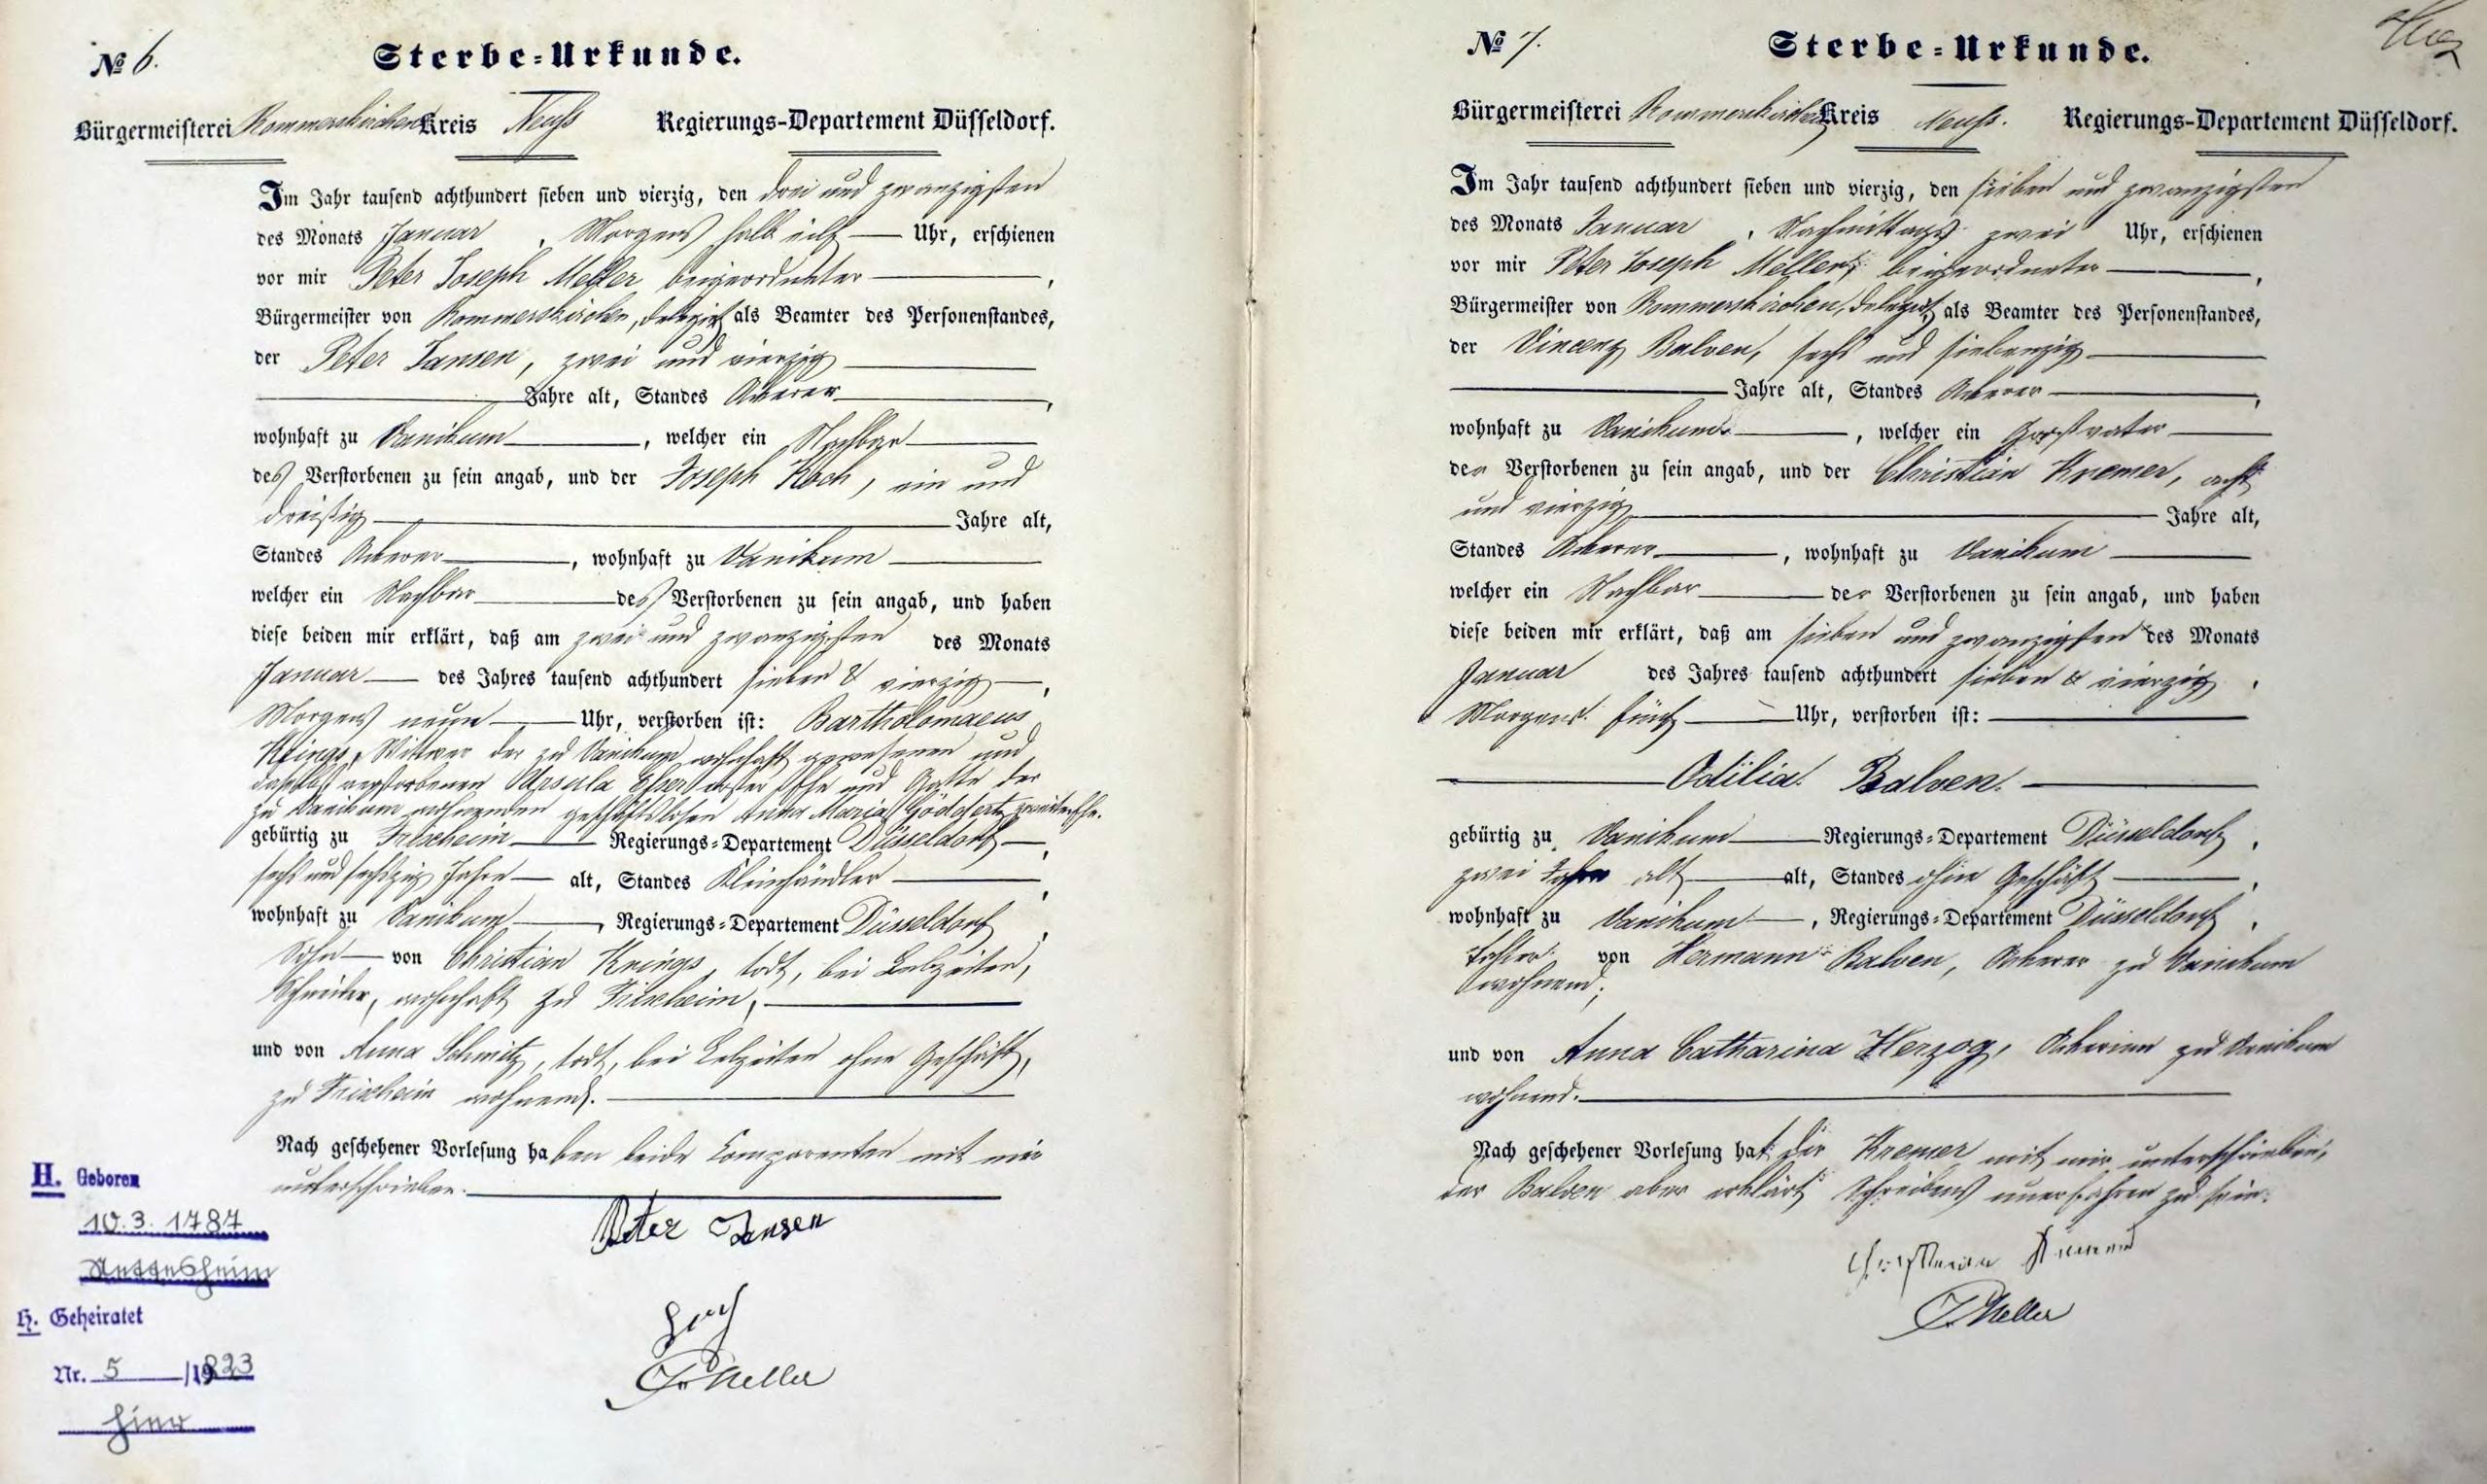 № 6.
Sterbe-Urkunde.
Bürgermeisterei Rommerskirchen Kreis Neuß Regierungs-Departement Düsseldorf.
Im Jahr tausend achthundert sieben und vierzig, den drei und zwanzigsten
des Monats Januar, Morgens halb eilf Uhr, erschienen
vor mir Peter Joseph Meller beigeordneter,
Bürgermeister von Rommerskirchen, delegirt als Beamter des Personenstandes,
der Peter Jansen, zwei und vierzig
Jahre alt, Standes Ackerer,
wohnhaft zu Vanikum, welcher ein Nachbar
des Verstorbenen zu sein angab, und der Joseph Koch, ein und
dreißig Jahre alt,
Standes Ackerer, wohnhaft zu Vanikum
welcher ein Nachbar des Verstorbenen zu sein angab, und haben
diese beiden mir erklärt, daß am zwei und zwanzigsten des Monats
Januar des Jahres tausend achthundert sieben & vierzig,
Morgens neun Uhr, verstorben ist: Bartholomaeus
Krings, Wittwer der zu Vanikum wohnhaft gewesenen und
daselbst verstorbenen Ursula Esser erster Ehe und Gatte der
zu Vanikum wohnenden geschäftslosen Anna Maria Göddertz zweiter Ehe.
gebürtig zu Frixheim Regierungs-Departement Düsseldorf,
sechs und sechszig Jahre alt, Standes Kleinhändler,
wohnhaft zu Vanikum, Regierungs-Departement Düsseldorf,
Sohn von Christian Krings, todt, bei Lebzeiten,
Schneider, wohnhaft zu Frixheim,
und von Anna Schmitz, todt, bei Lebzeiten ohne Geschäft,
zu Frixheim wohnend.
Nach geschehener Vorlesung haben beide Comparenten mit mir
unterschrieben.
Peter Jansen
Koch
PJ Meller
H. Geboren
10.3.1787
Nettesheim
H. Geheiratet
Nr. 5 /1823
hier
№ 7.
Sterbe-Urkunde.
Bürgermeisterei Rommerskirchen Kreis Neuß. Regierungs-Departement Düsseldorf.
Im Jahr tausend achthundert sieben und vierzig, den sieben und zwanzigsten
des Monats Januar, Nachmittags zwei Uhr, erschienen
vor mir Peter Joseph Meller, beigeordneter,
Bürgermeister von Rommerskirchen, delegirt als Beamter des Personenstandes,
der Vincenz Balven, sechs und siebenzig
Jahre alt, Standes Ackerer,
wohnhaft zu Vanikum, welcher ein Großvater
der Verstorbenen zu sein angab, und der Christian Kremer, acht
und vierzig Jahre alt,
Standes Ackerer, wohnhaft zu Vanikum
welcher ein Nachbar der Verstorbenen zu sein angab, und haben
diese beiden mir erklärt, daß am sieben und zwanzigsten des Monats
Januar des Jahres tausend achthundert sieben & vierzig,
Morgens fünf Uhr, verstorben ist:
Odilia Balven.
gebürtig zu Vanikum Regierungs-Departement Düsseldorf,
zwei Jahre alt alt, Standes ohne Geschäft,
wohnhaft zu Vanikum, Regierungs-Departement Düsseldorf,
Tochter von Hermann Balven, Ackerer zu Vanikum
wohnend;
und von Anna Catharina Herzog, Ackerinn zu Vanikum
wohnend.
Nach geschehener Vorlesung hat der Kremer mit mir unterschrieben,
der Balven aber erklärt Schreibens unerfahren zu sein.
Christian Kremer
PJ Meller